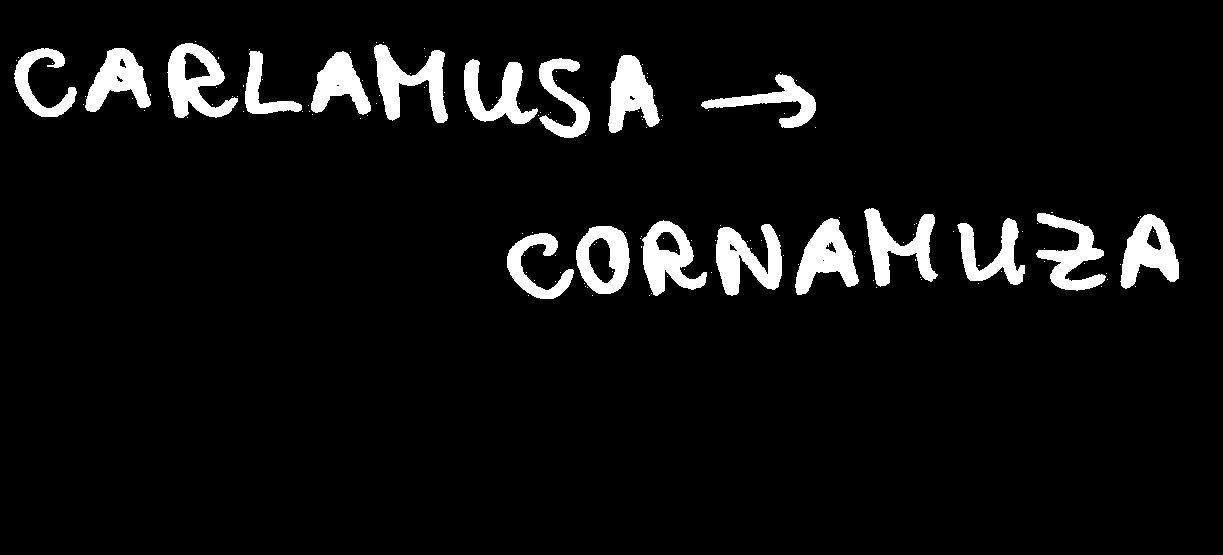 CARLAMUSA →
CORNAMUZA